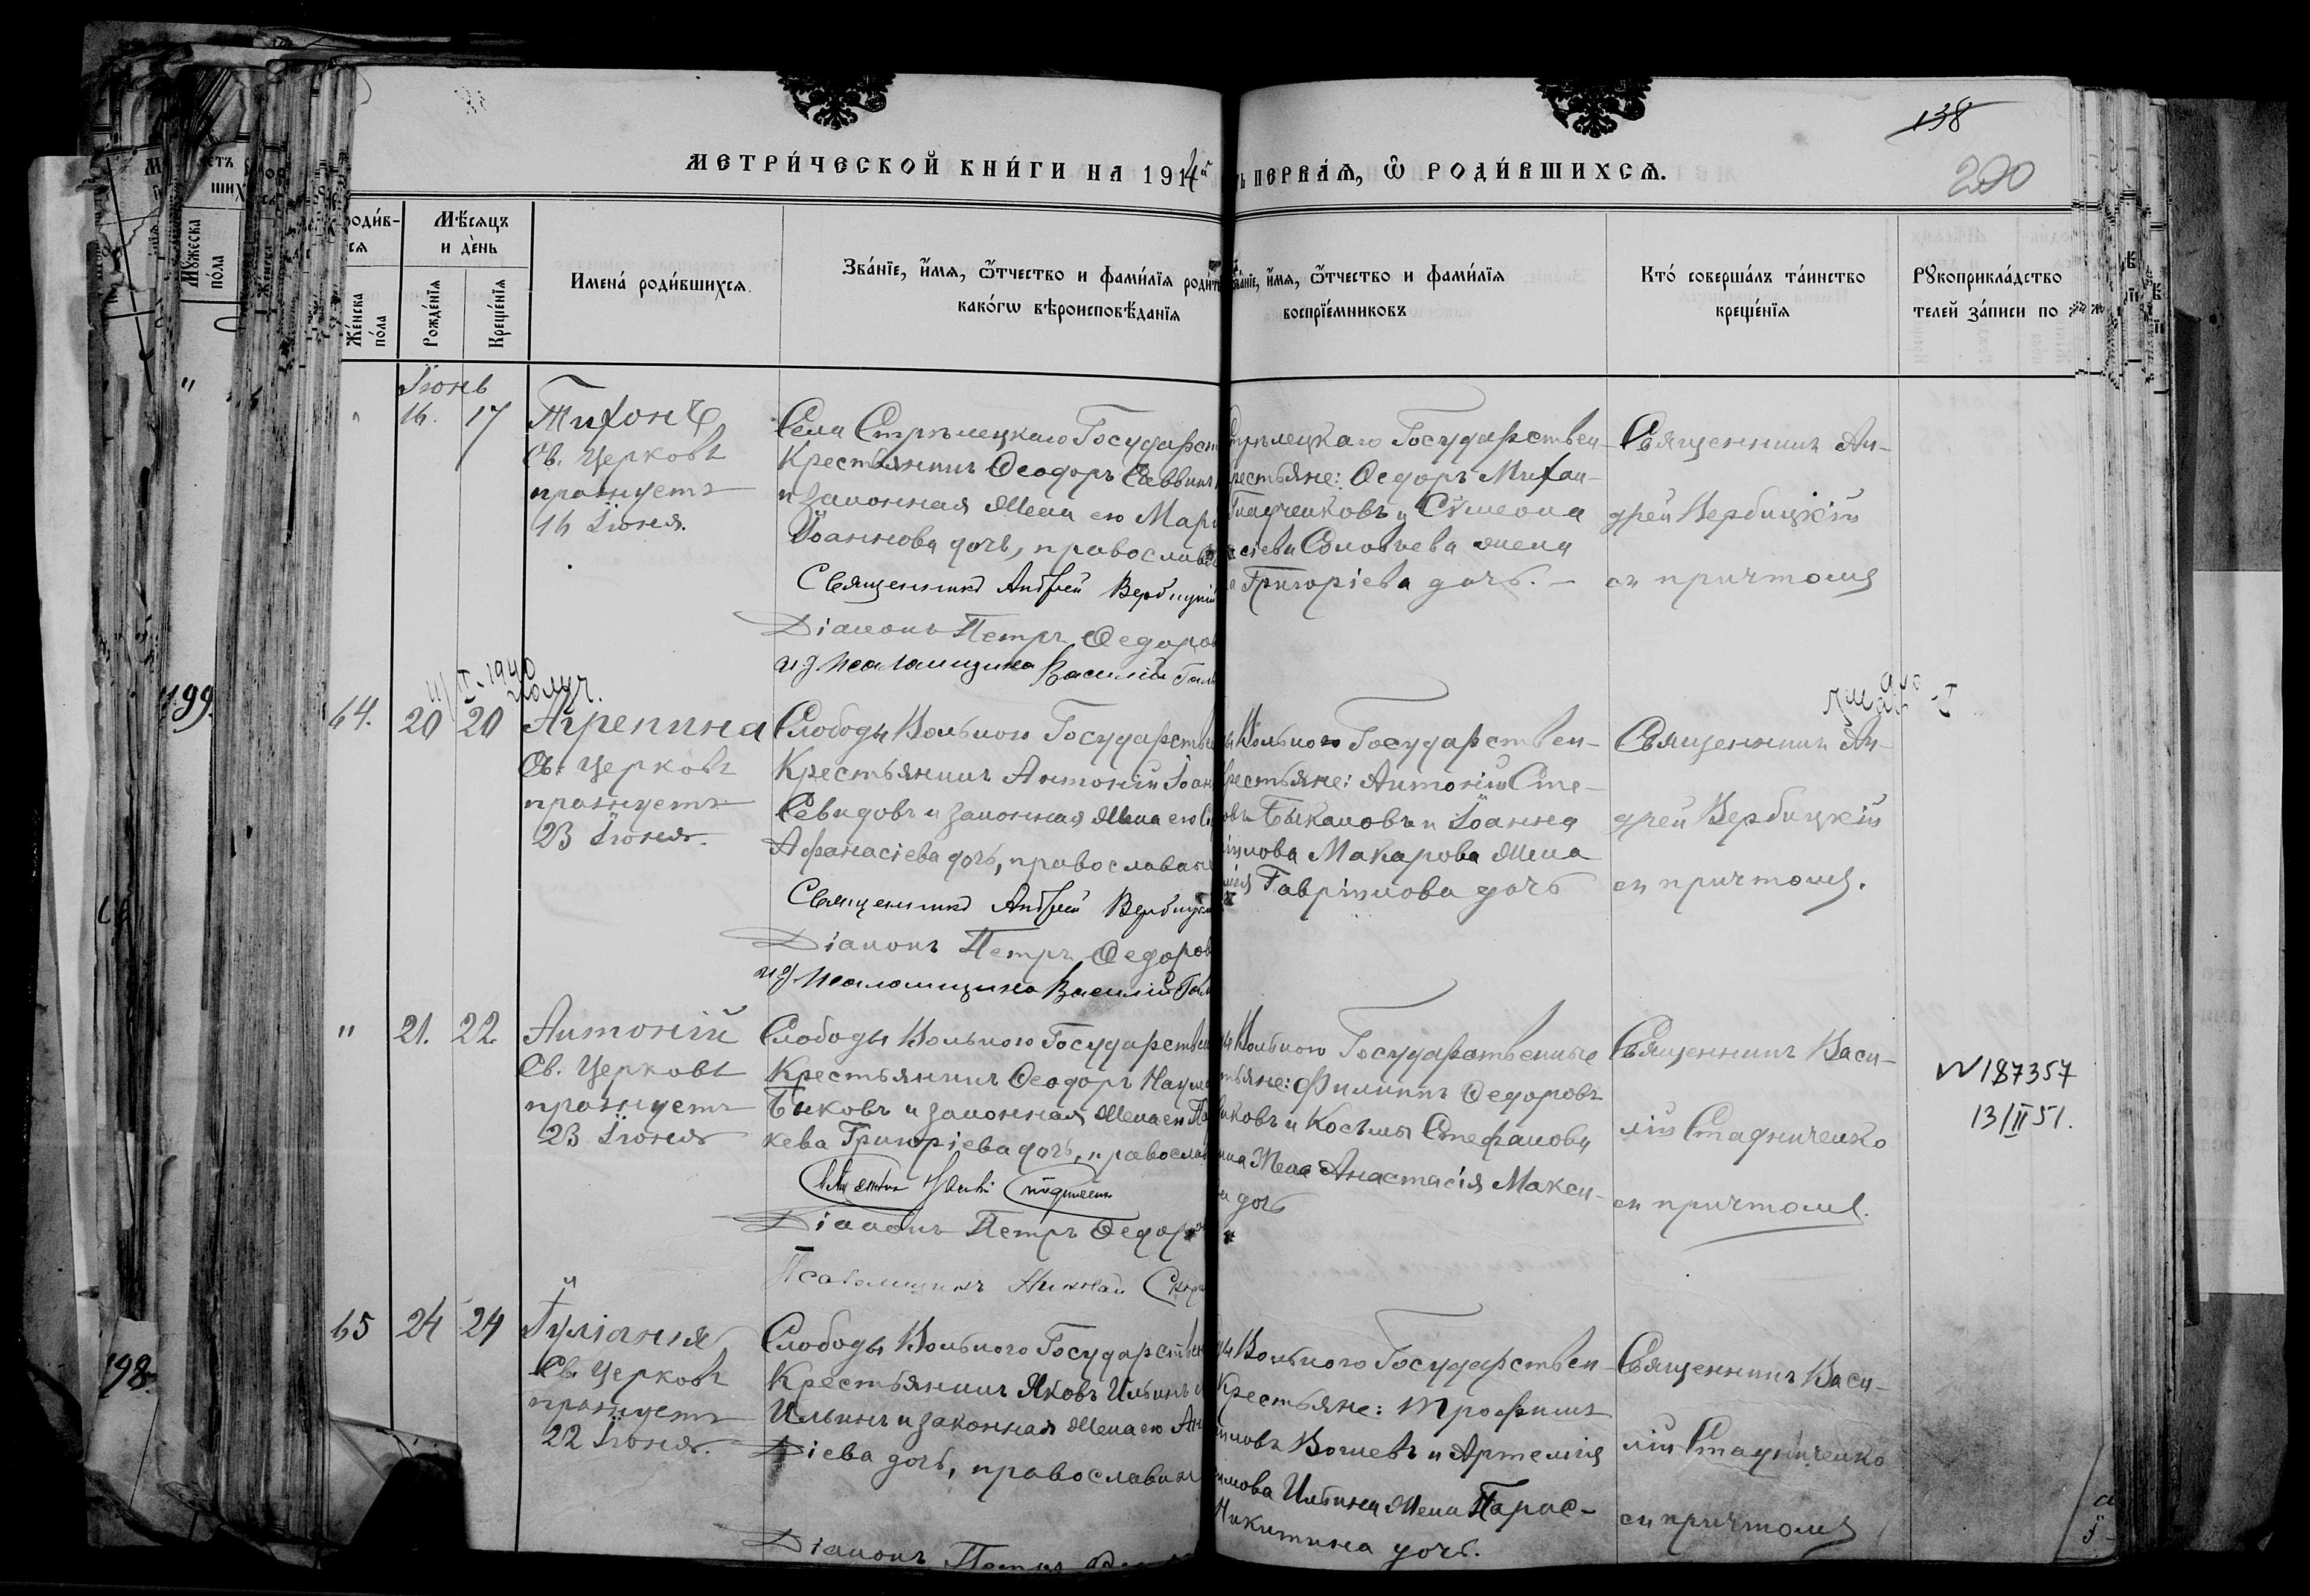 138
200
МЕТРИ́ЧЕСКОЙ КНИ́ГИ НА 1914й
ПЕРВА́Я, Ѿ РОДИ́ВШИХСЯ.
роди́в-
ся
Мѣ́сяцъ
и де́нь
Же́нска
по́ла
Рожде́нїя
Креще́нїя
Имена́ роди́вшихся.
Зва́нїе, и́мя, ѻ҆́тчество и фами́лїя роди
како́гѡ вѣроисповѣ́данїя
и́мя, ѻ҆́тчество и фами́лїя
воспрїе́мниковъ
Кто́ соверша́лъ та́инство
креще́нїя
Рꙋкоприкла́дство
телей за́писи по
Мꙋ́жеска
по́ла
Іюнь
16. 17
Тихонъ
Св. Церковь
празнуетъ
16 Іюня.
Села Стрѣлецкаго Государст
Крестьянинъ Ѳеодоръ Саввинъ
и законная жена его Мар
Іоаннова дочь, православ
Священникъ Андрей Вербицкій
Діаконъ Петръ Ѳедоров
и д. псаломщика Василій Гал
Стрѣлецкаго Государствен-
рестьяне: Ѳедоръ Михаи-
Гладченковъ и Сѵмеона
сіева Соловьева жена
Григоріева дочь.
Священникъ Ан-
дрей Вербицкій
съ причтомъ
1940
получ.
199.
64. 20 20
Агрепина
Св. Церковь
празнуетъ
23 Іюня.
Слободы Вольного Государствен
Крестьянинъ Антоній Іоан
Севидовъ и законная жена его
Афанасіева дочь, православные
Священникъ Андрей Вербицкій
Діаконъ Петръ Ѳедоров
и д. псаломщика Василій Гал
Вольного Государствен-
рестьяне: Антоній Сте-
овъ Быкановъ и Іоанна
Макарова жена
Гавріилова дочь
Священникъ Ан-
дрей Вербицкій
съ причтомъ.
" 21. 22
Антоній
Св. Церковь
празнуетъ
23 Іюня
Слободы Вольного Государствен
Крестьянинъ Ѳеодоръ Наумо
Быковъ и законная жена его Па
кева Григоріева дочь, православ
Діаконъ Петръ Ѳедоров
Псаломщикъ Николай Скр
Вольного Государственные
тьяне: Филиппъ Ѳедоровъ
ковъ и Косьмы Стефанова
жена Анастасія Макси-
дочь
Священникъ Васи-
лій Стадниченко
съ причтомъ.
№187357
13/II 51.
198.
65 24 24
Іуліанія
Св. Церковь
празнуетъ
22 Іюня.
Слободы Вольного Государствен
Крестьянинъ Яковъ Ильинъ
Ильинъ и законная жена его Ан
діева дочь, православны
Діаконъ Петръ
Вольного Государствен-
Крестьяне: Трофимъ
Вошевъ и Артемія
мова Ильина жена Парас-
Никитина дочь.
Священникъ Васи-
лій Стадниченко
съ причтомъ